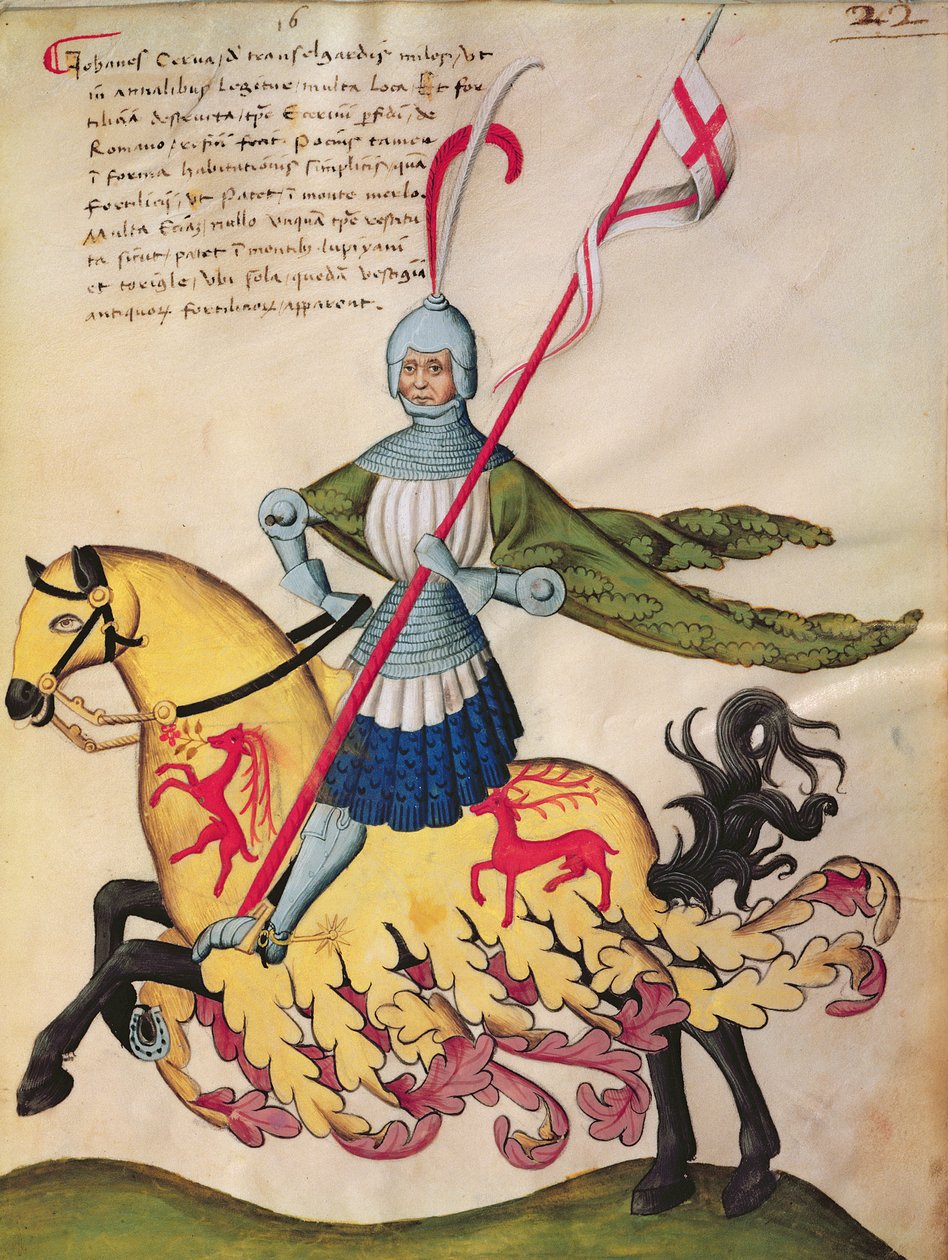 16
22
Johanes Cerua / d' transelgardis miles / vt
in annalibus legitur / multa loca / Et for
tilitia destructa / tpe Ecerini pfidi / de
Romano / fecit. Pocius tamen
ī forma habitationis simplicis / quā
fortilicij / vt Patet / ī monte merlo.
Multa Eciā / nullo vnquā tpe restitu
ta sicut / patet ī montibȝ lupiyani
et torigle / vbi sola / quedā vestigia
antiquoꝝ fortilicioꝝ / apparent.